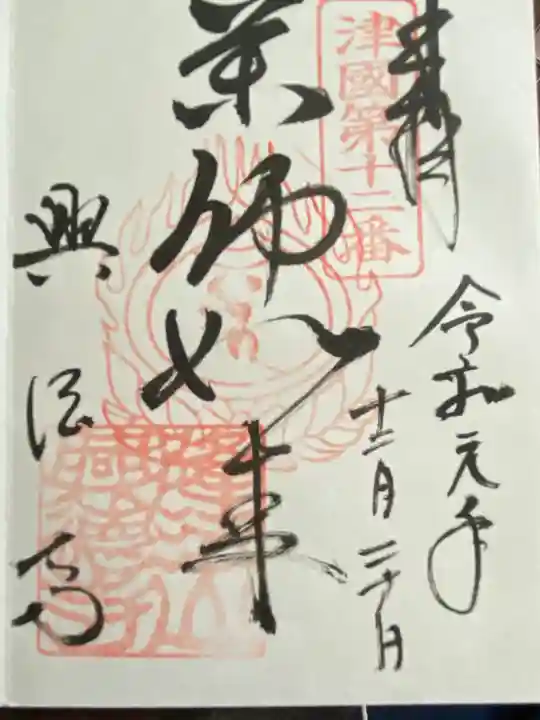 奉拝
津國第十二番
令和元年
十二月二十日
薬師如来
興徳寺